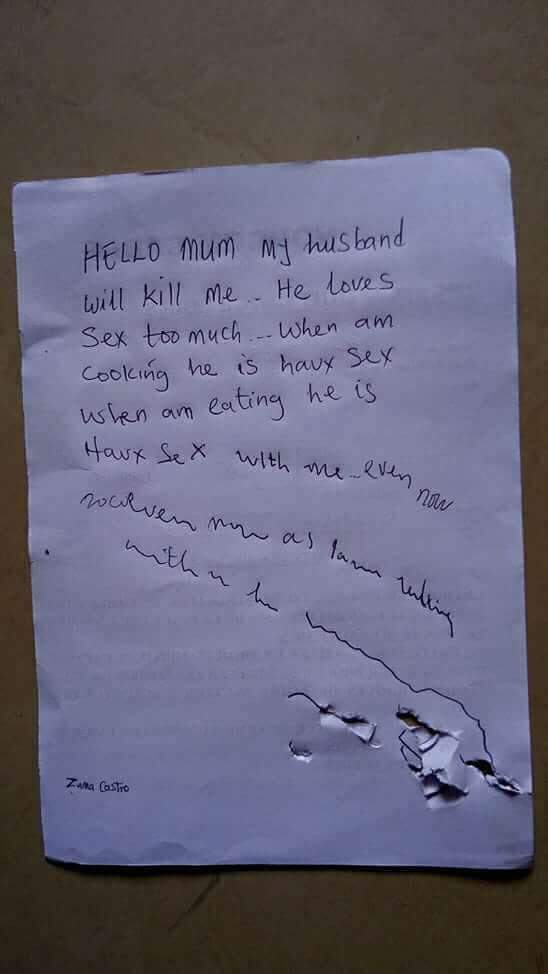 HELLO MUM My husband
will kill me.. He loves
Sex too much... When am
Cooking he is havx Sex
when am eating he is
Havx Sex with me..even now
even now as
with u he
Zana Castro